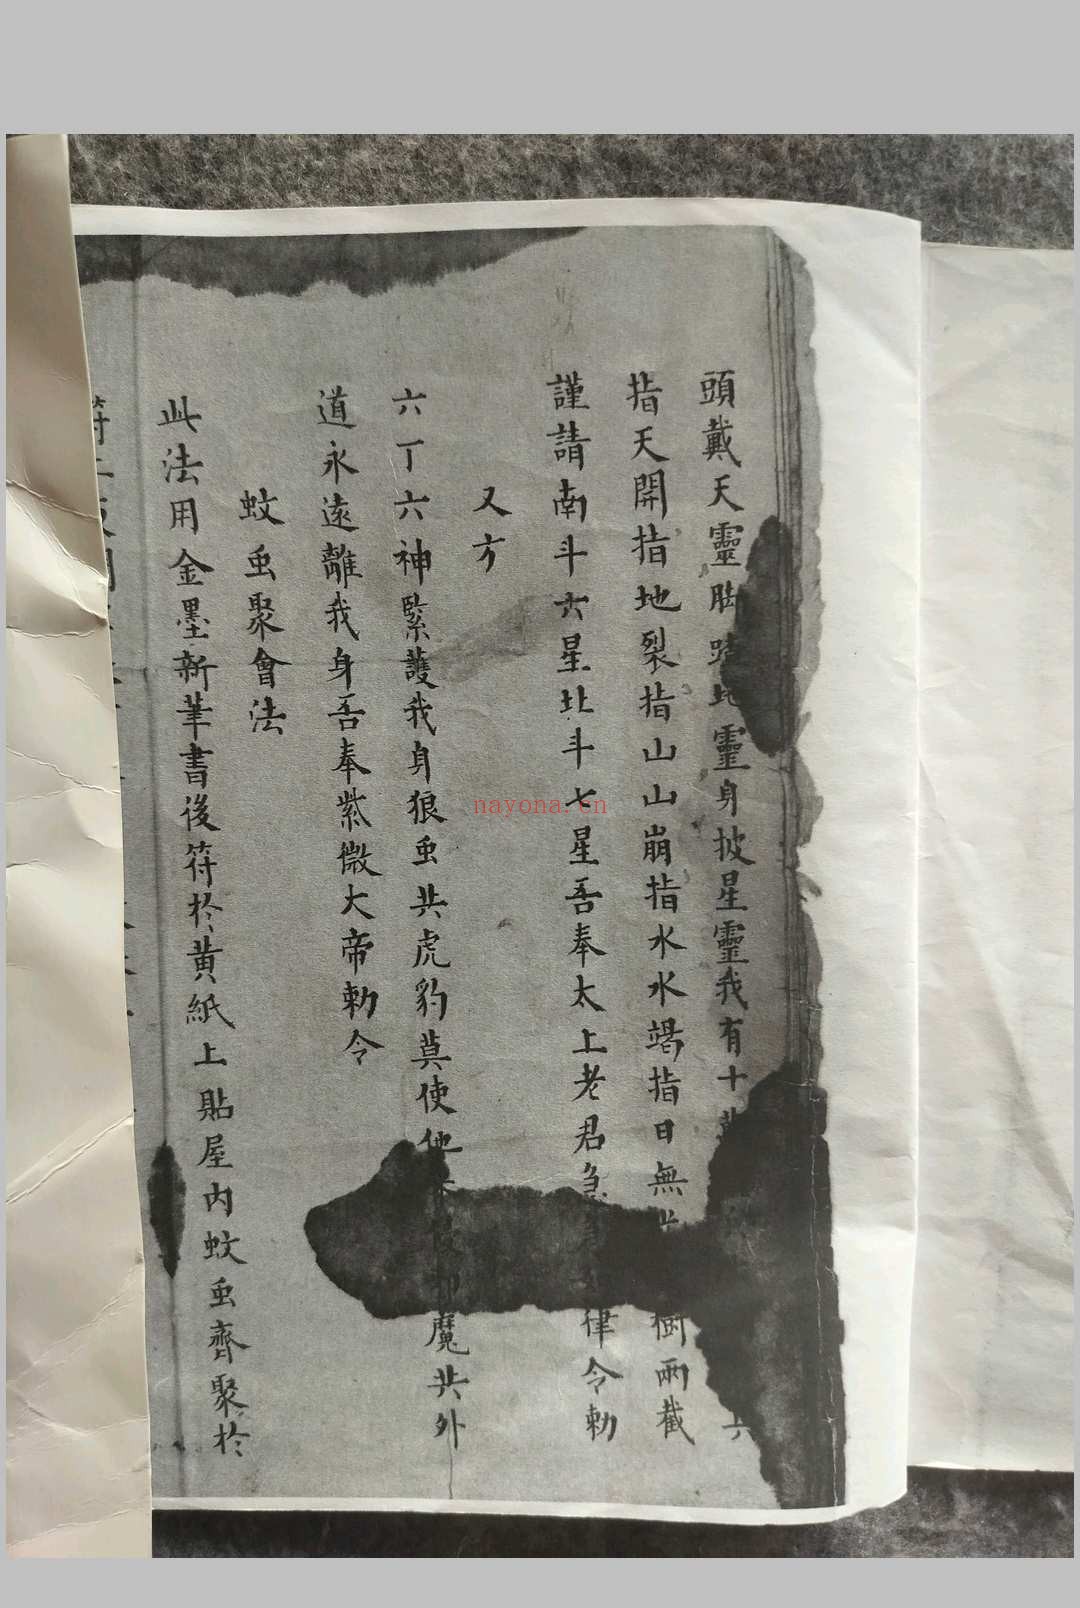 頭戴天靈脚踏地靈身披星靈我有十
指天開指地裂指山山崩指水水竭指日無光樹兩截
謹請南斗六星北斗七星吾奉太上老君急律令勅
又方
六丁六神緊護我身狼虫共虎豹莫使他來魔共外
道永遠離我身吾奉紫微大帝勅令
蚊虫聚會法
此法用金墨新筆書後符於黄紙上貼屋内蚊虫齊聚於
nayona.cn